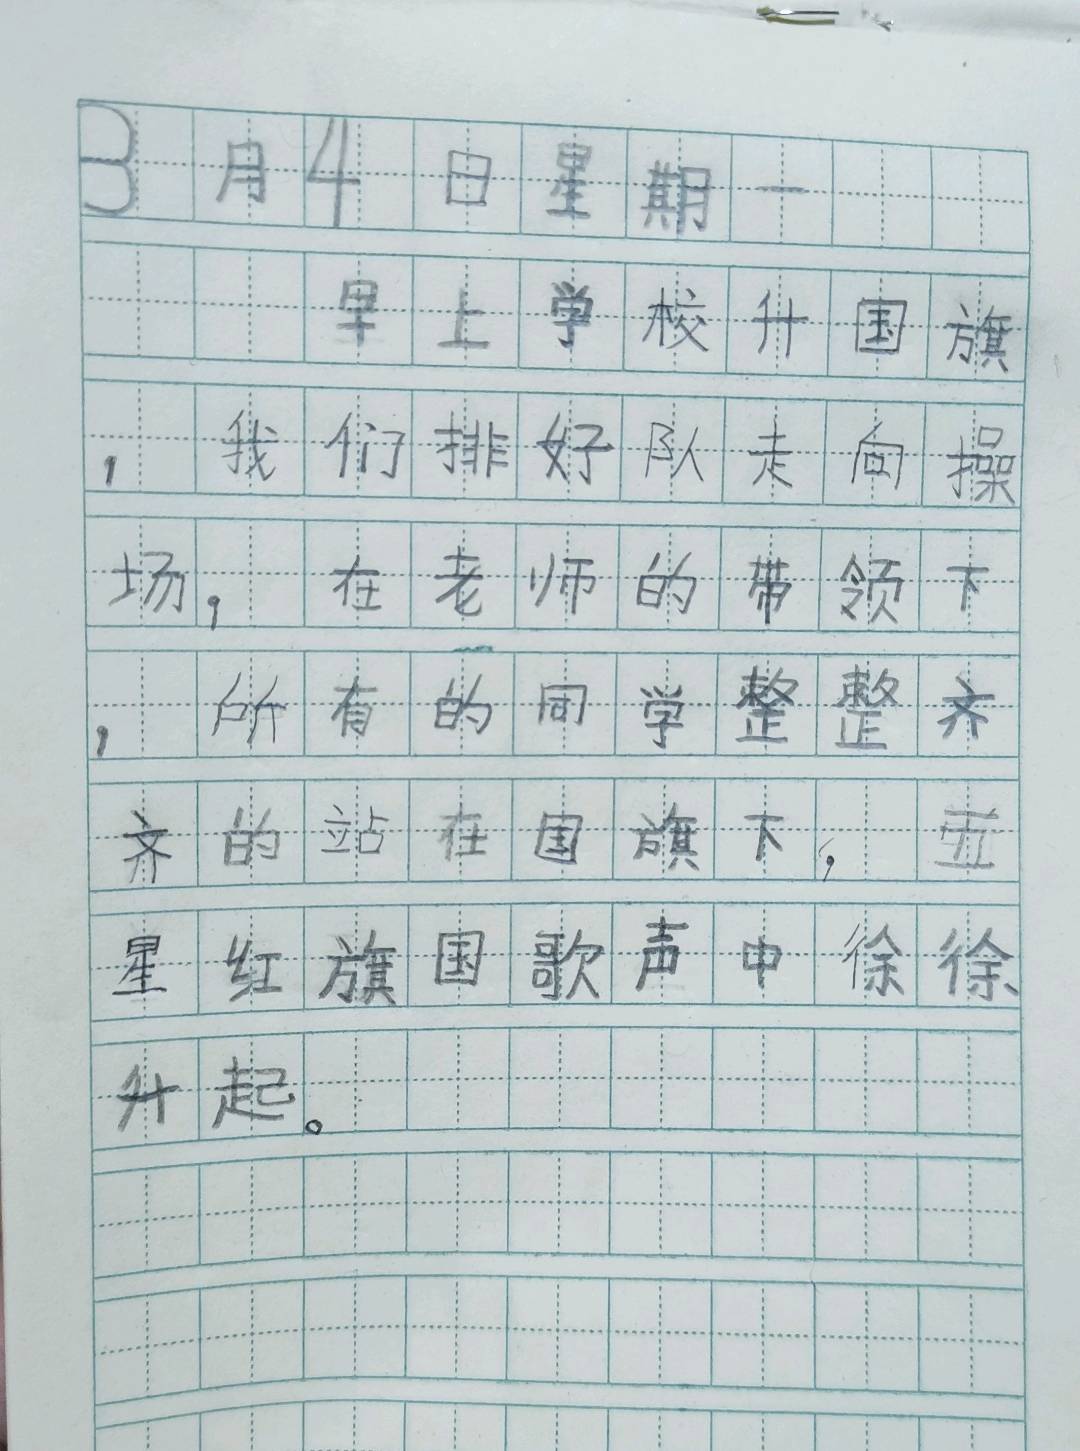 3月4日星期一
早上学校升国旗
，我们排好队走向操
场，在老师的带领下
，所有的同学整整齐
齐的站在国旗下，五
星红旗国歌声中徐徐
升起。